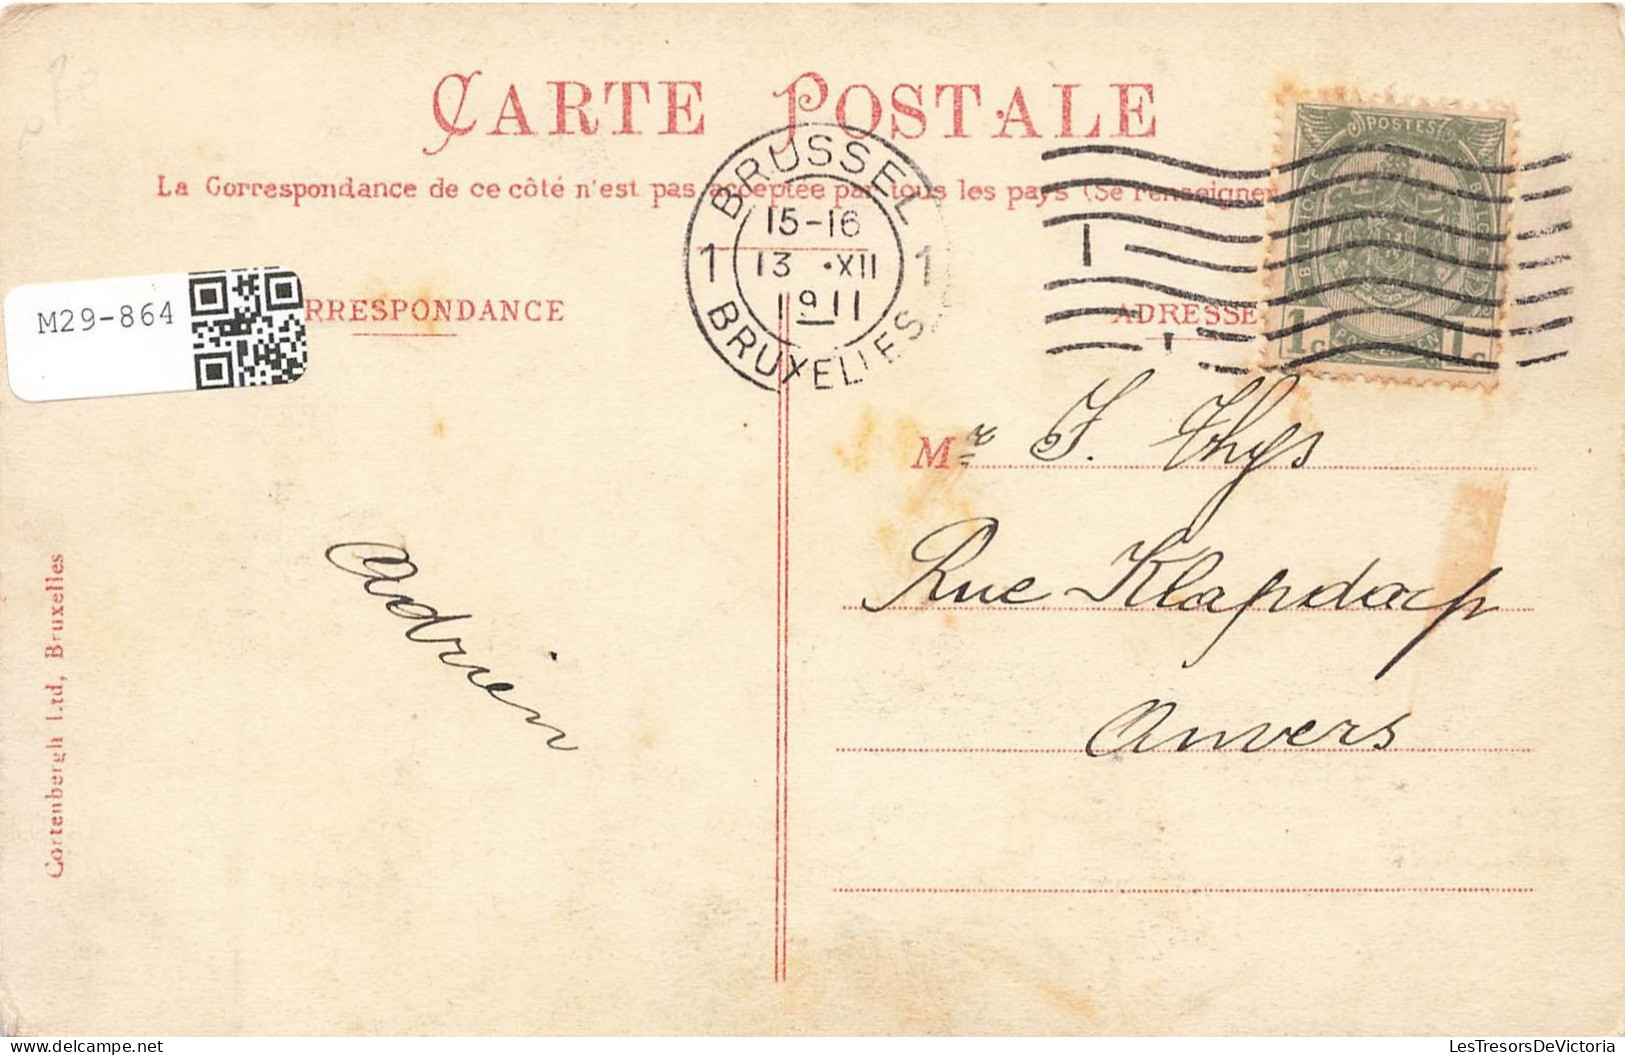 CARTE POSTALE
La Correspondance de ce côté n'est pas acceptée par tous les pays (Se renseigner
BRUSSEL
15-16
1 13 .XII 1
1911
BRUXELLES
1
POSTES
BELGIQUE BELGIE
1c 1c
M29-864
RRESPONDANCE
ADRESSE
Mr J. Thys
Rue Klapdorp
Anvers
Adrien
Cortenbergh Ltd, Bruxelles
LesTresorsDeVictoria